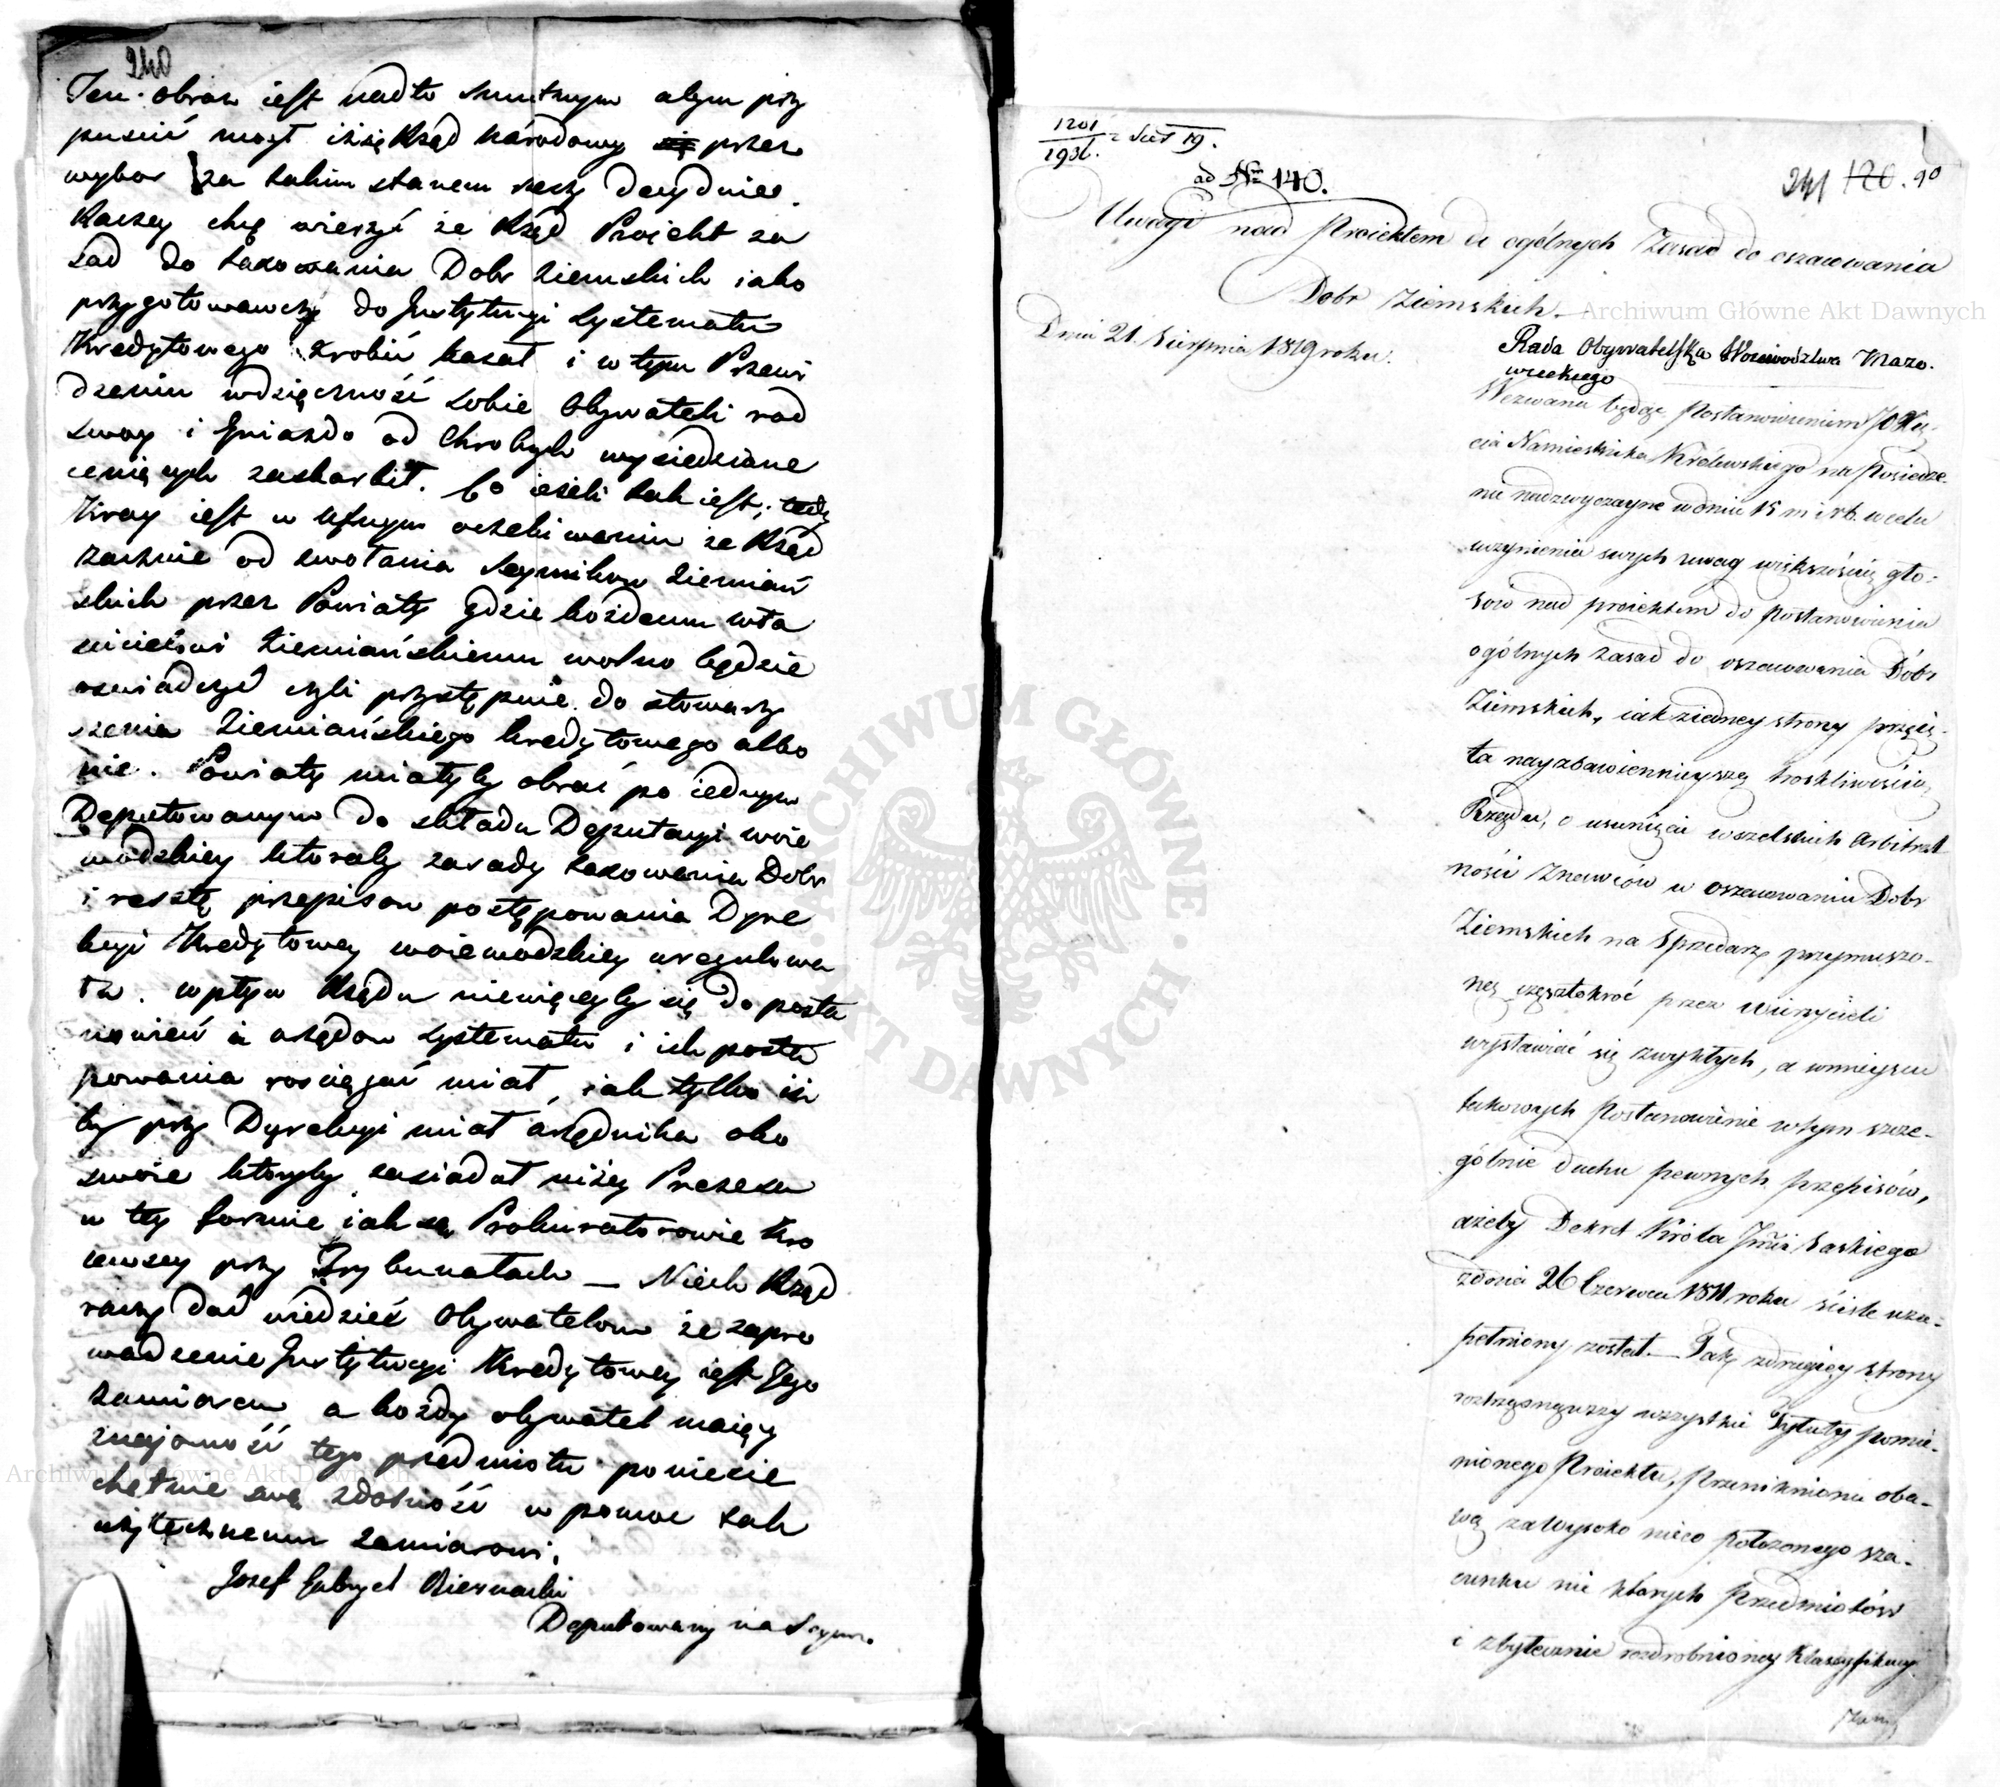 240
Ten obraz iest nadto smutnym abym przy
puścić mogł iż się Rząd Narodowy przez
wybor za takim stanem rzeczy decyduie.
Raczey chcę wierzyć że Rząd Proiekt za
sad do taxowania Dobr Ziemskich iako
przygotowawczy do Instytucyi Systematu
Kredytowego zrobić kazał i w tym Przewi
dzeniu wdzięczność sobie Obywateli rod
swoy i Gniazdo od Chrobrych wysiedziane
ceniących zaskarbił. Co ieżeli tak iest,
Kray iest w ufnym oczekiwaniu że Rząd
zacznie od zwołania Seymikow Ziemiań
skich przez Powiaty gdzie każdemu wła
ścicielowi Ziemiańskiemu wolno będzie
oswiadczyć czyli przystępuie do stowarzy
szenia Ziemiańskiego kredytowego albo
nie. Powiaty miałyby obrać po iednym
Deputowanym do składu Deputacyi woie
wodzkiey ktoraby zasady taxowania Dobr
i resztę przepisow postępowania Dyre
kcyi Kredytowey woiewodzkiey uregulowa
ła. wpływ Rządu niewięcyby się do posta
nowień i urzędow systematu i ich postę
powania rościągać miał, iak tylko iż
by przy Dyrekcyi miał urzędnika oko
swoie ktoryby zasiadał niżey Prezesa
w tey formie iak są Prokuratorowie Kro
lewscy przy Trybunałach — Niech Rząd
raczy dać wiedzieć Obywatelom że zapro
wadzenie Instytucyi Kredytowey iest Jego
zamiarem a każdy obywatel maiący
znajomość tego przedmiotu poniesie
chętnie swą zdolność w pomoc tak
użytecznemu zamiarowi.
Jozef Gabryel Biernacki
Deputowany na Seym.
1201
1936. z Sies 19.
ad Nrm 140.
241 120. 90
Uwagi nad Proiektem do ogólnych Zasad do oszacowania
Dobr Ziemskich.
Archiwum Główne Akt Dawnych
Dnia 21. Sierpnia 1819 roku.
Rada Obywatelska Woiewodztwa Mazo-
wieckiego
Wezwana będąc Postanowieniem JO Xię-
cia Namiestnika Królewskiego na Posiedze-
nie nadzwyczayne w dniu 15 m i r b. w celu
uczynienia swych uwag większością gło-
sow nad proiektem do postanowienia
ogólnych zasad do oszacowania Dóbr
Ziemskich, iak z iedney strony przeię-
ta nayzbawiennieyszą troskliwością
Rządu, o usunięcie wszelkich arbitral-
ności Znawców w oszacowaniu Dobr
Ziemskich na Sprzedarz przymuszo-
ną częstokroć przez Wierzycieli
wystawiać się zwykłych, a w mieysce
takowych Postanowienie w tym szcze-
gólnie duchu pewnych przepisów,
ażeby Dekret Króla Jmci Saskiego
z dnia 26 Czerwca 1811 roku ściśle uzu-
pełniony został — Tak z drugiey strony
roztrząsnąwszy wszystkie Tytuły pomie-
nionego Proiektu, przeniknioną oba-
wą za wysoko nieco położonego sza-
cunku nie których Przedmiotów
i zbytecznie rozdrobnioney Klassyfikacyi
Archiwum Główne Akt Dawnych
ARCHIWUM GŁÓWNE · AKT DAWNYCH ·